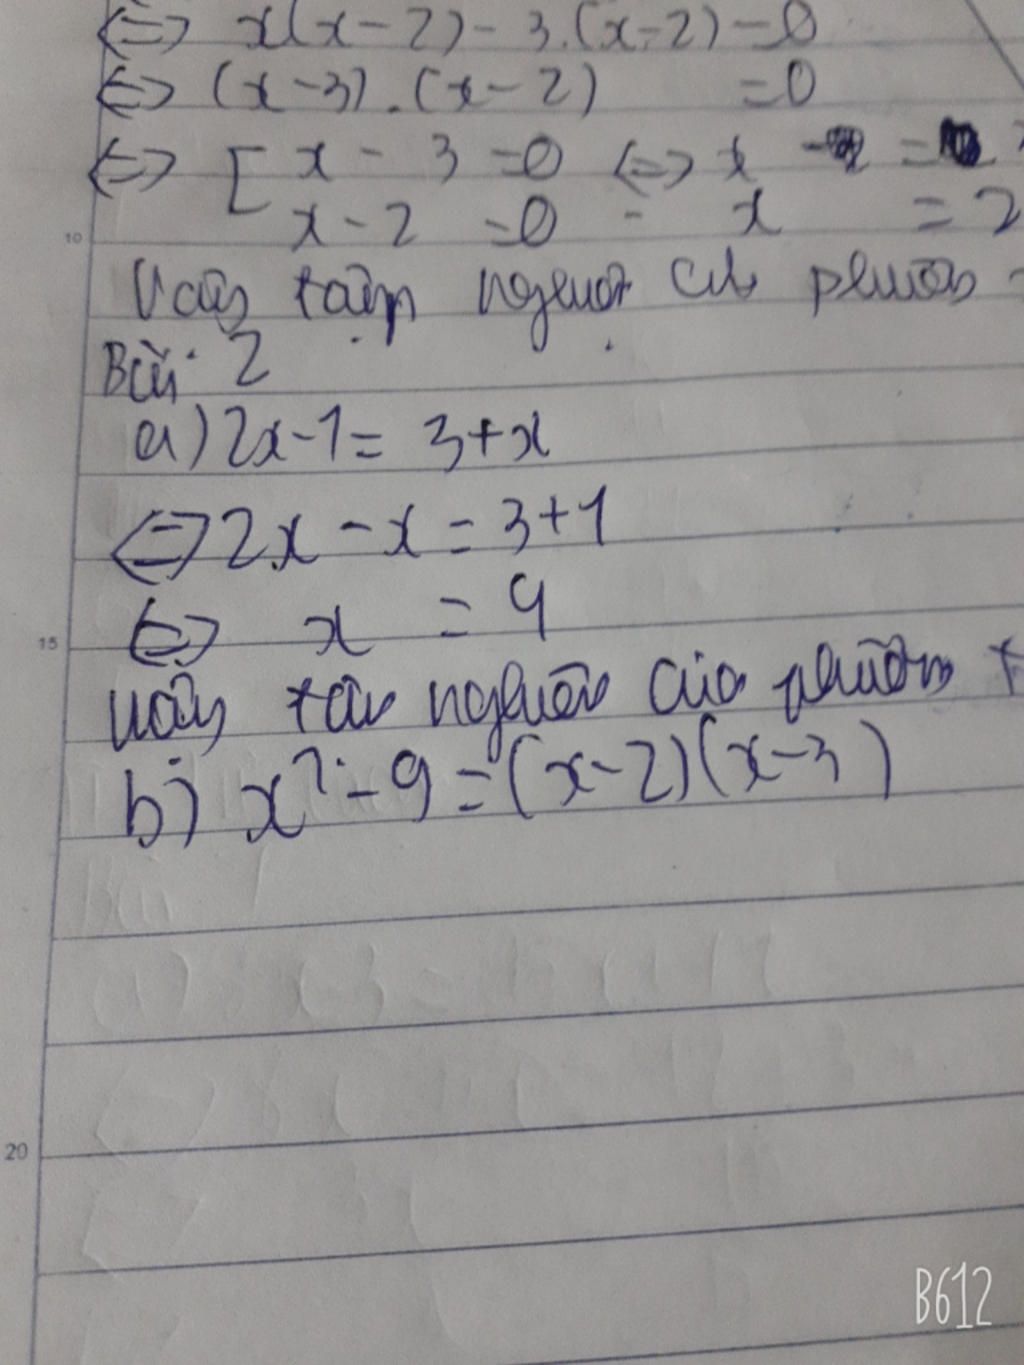 ⇔ x(x-2)-3.(x-2)=0
⇔ (x-3).(x-2) =0
⇔ [ x-3=0 ⇔ x =
10 x-2 =0 - x = 2
Vậy tập nghiệm của phương
Bài 2
a) 2x-1= 3+x
⇔ 2x - x = 3+1
⇔ x = 4
15
Vậy tập nghiệm của phương
b) x² - 9 = (x-2)(x-3)
20
B612